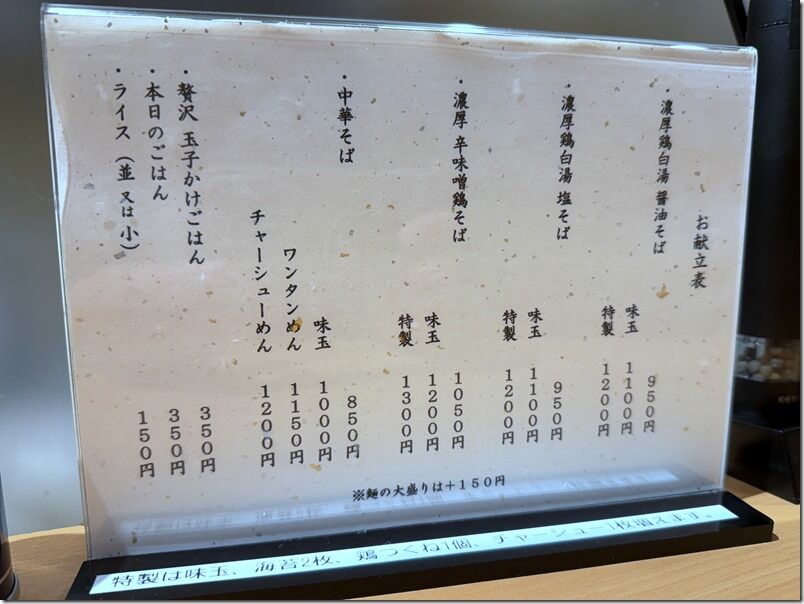 お献立表
・濃厚鶏白湯 醤油そば 950円
味玉 1100円
特製 1200円
・濃厚鶏白湯 塩そば 950円
味玉 1100円
特製 1200円
・濃厚 辛味噌鶏そば 1050円
味玉 1200円
特製 1300円
・中華そば 850円
味玉 1000円
ワンタンめん 1150円
チャーシューめん 1200円
・贅沢 玉子かけごはん 350円
・本日のごはん 350円
・ライス（並 又は 小） 150円
※麺の大盛りは＋150円
特製は味玉、海苔2枚、鶏つくね1個、チャーシュー1枚増えます。